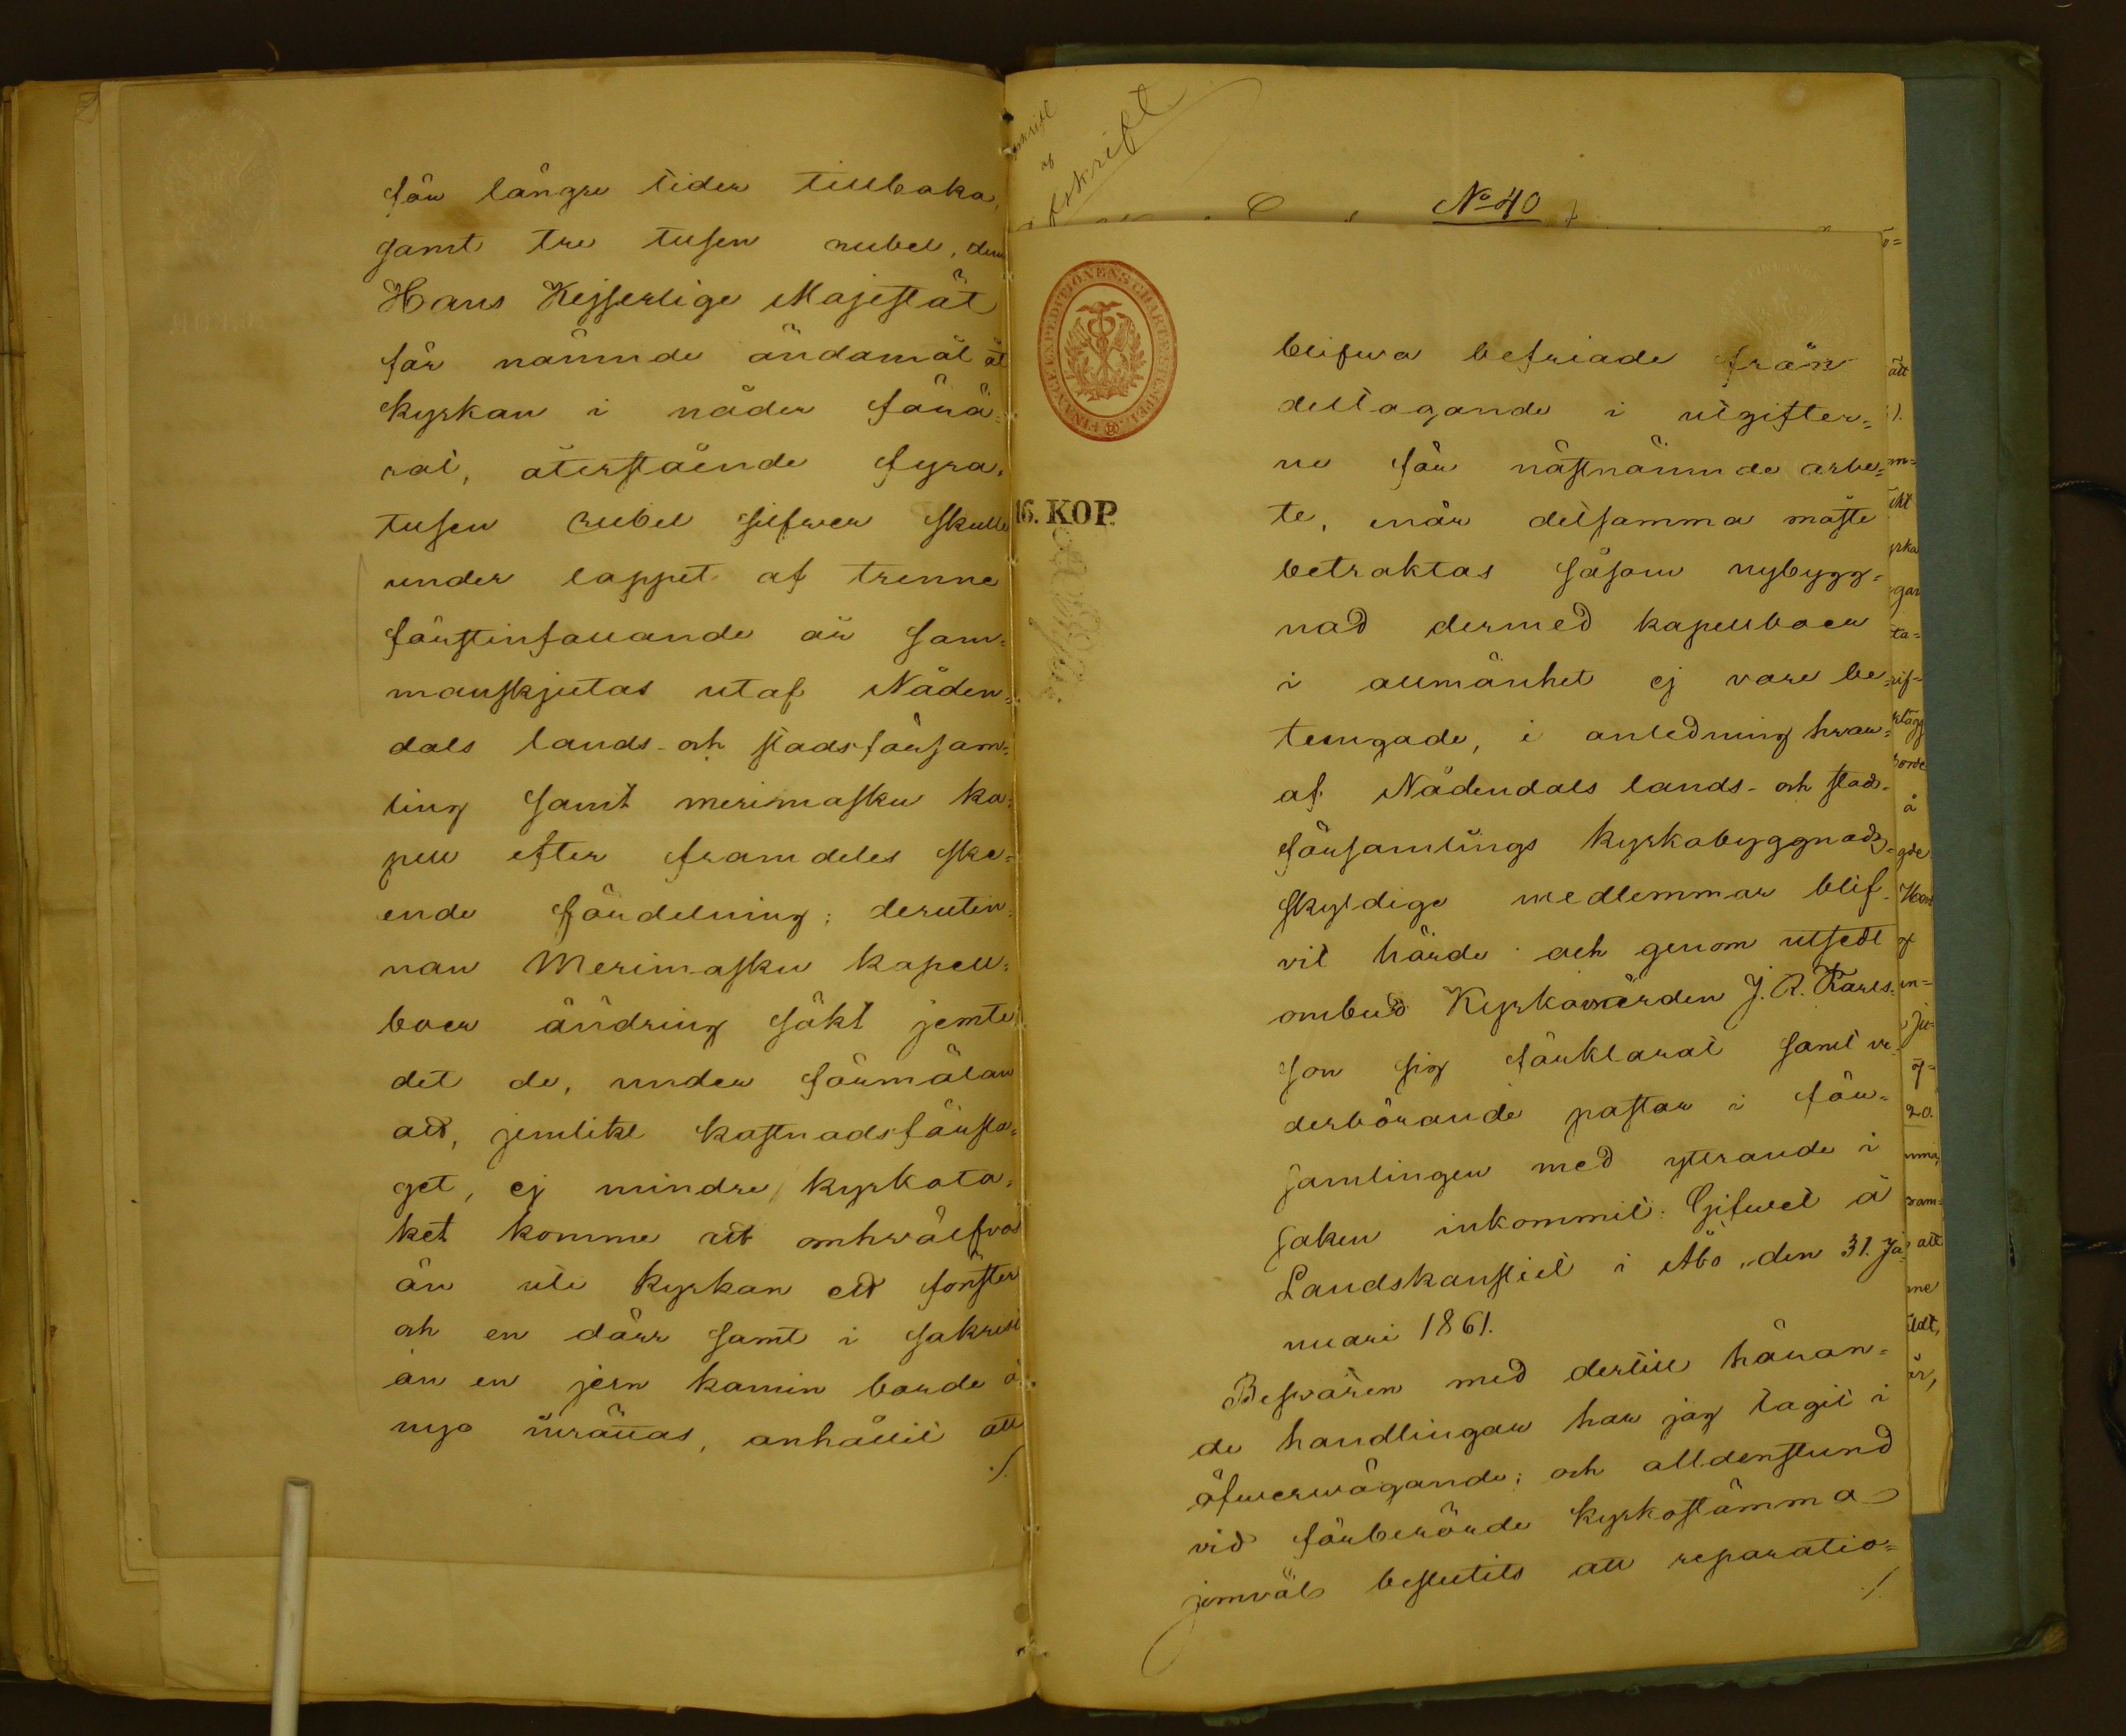 för längre tider tillbaka,
samt tre tusen rubel, dem
Hans Kejserlige Majestät
för nämnde ändamål åt
kyrkan i nåder förä-
rat, återstående fyra-
tusen rubel silfver skulle
under loppet af trenne
förstinfallande år sam-
manskjutas utaf Nåden-
dals lands- och stadsförsam-
ling samt Merimasku ka-
pell efter framdeles ske-
ende fördelning; derutin-
nan Merimasku kapell-
boer ändring sökt jemte
det de, under förmälan
att, jemlikt kostnadsförsla-
get, ej mindre kyrkota-
ket komme att omhvälfvas
än uti kyrkan ett fönster
och en dörr samt i sakrist
än en jern kamin borde å
nyo inrättas, anhållit att
./.
afskrift
af
Afskrift
No 40
FINANCE EXPEDITIONENS CHARTÆ SIGILLATÆ
16. KOP.
blifva befriade från
deltagande i utgifter-
ne för nästnämnde arbe-
te, enär detsamma måste
betraktas såsom nybygg-
nad dermed kapellboer
i allmänhet ej vore be-
tungade, i anledning hvar-
af Nådendals lands- och stads-
församlings kyrkobyggnads-
skyldige medlemmar blif-
vit hörde och genom utsedt
ombud Kyrkovärden J. R. Karls-
son sig förklarat samt ve-
derbörande pastor i för-
samlingen med yttrande i
saken inkommit: Gifvet å
Landskansliet i Åbo, den 31. Ja-
nuari 1861.
Besvären med dertill höran-
de handlingar har jag tagit i
öfvervägande; och alldenstund
vid förberörde kyrkostämma
jemväl beslutits att reparatio-
./.